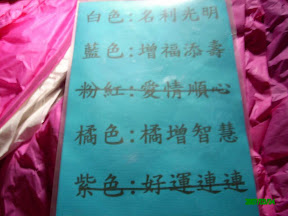 白色:名利光明
藍色:增福添壽
粉紅:愛情順心
橘色:橘增智慧
紫色:好運連連